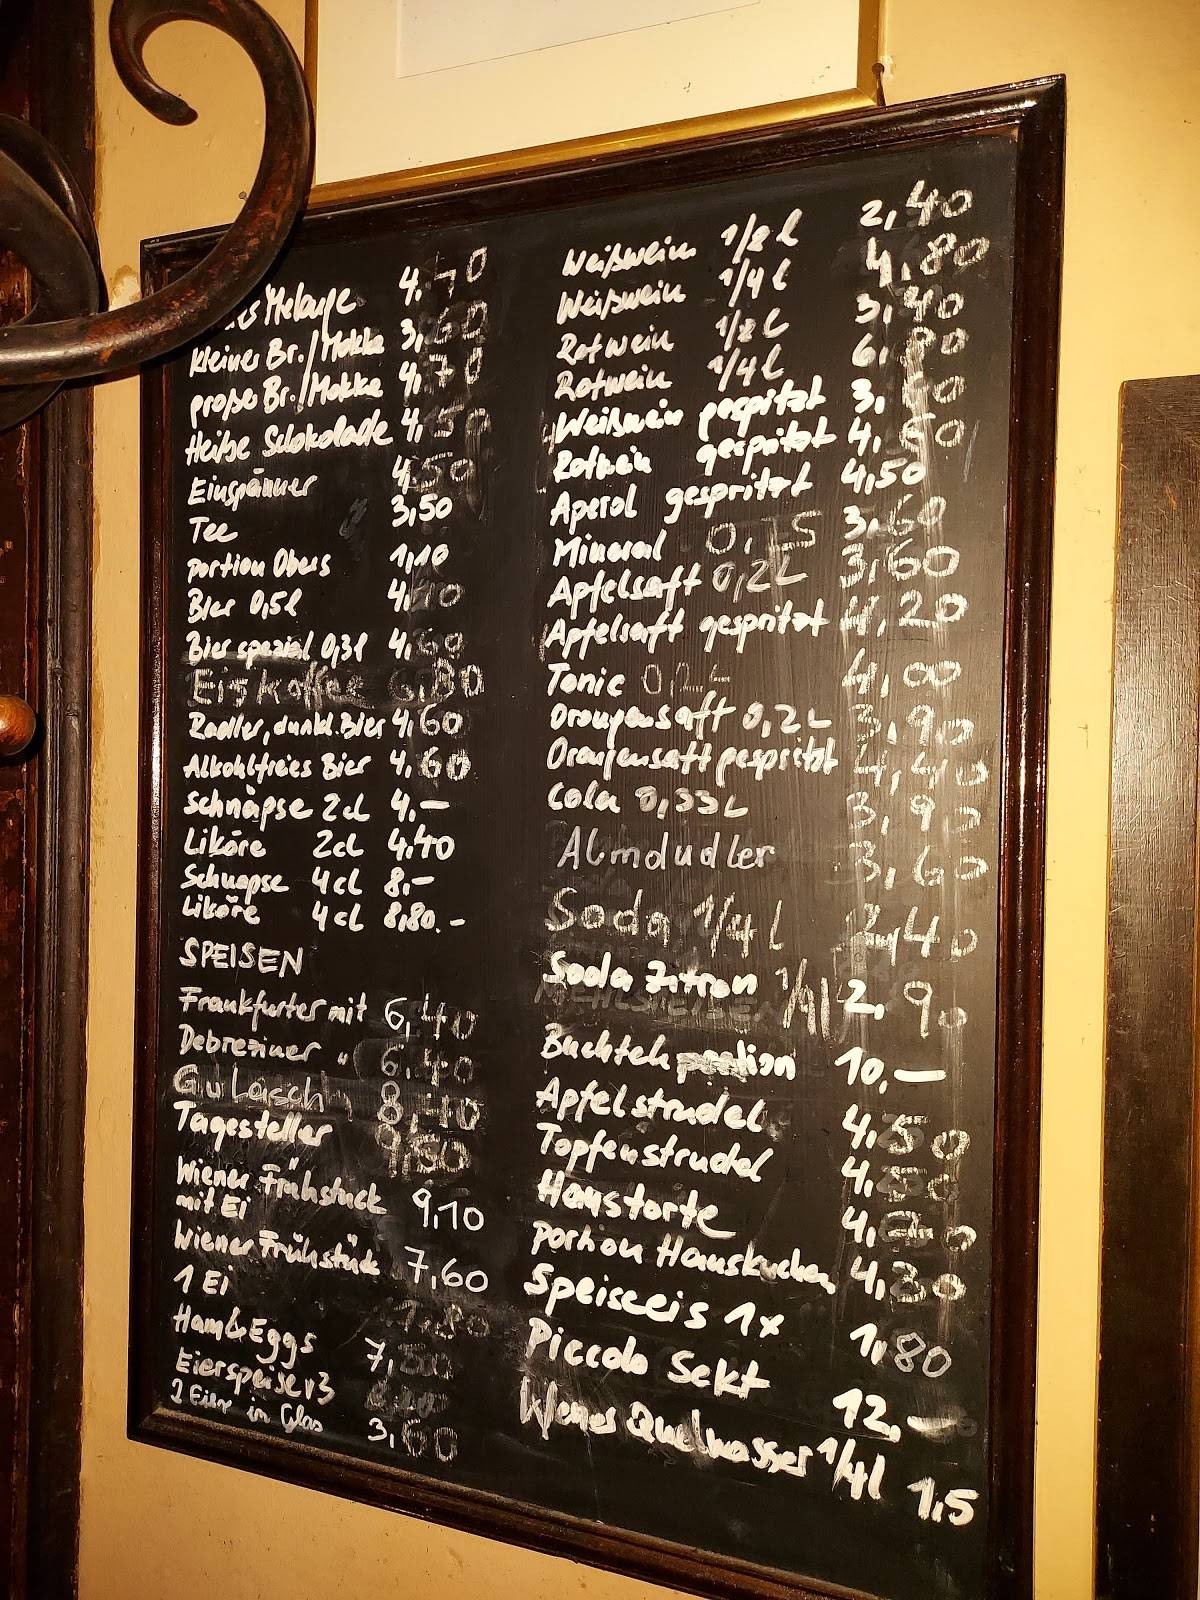 Melange 4,70
kleiner Br./Mokka 3,60
großer Br./Mokka 4,70
Heiße Schokolade 4,50
Einspänner 4,50
Tee 3,50
portion Obers 1,10
Bier 0,5l 4,
Bier spezial 0,3l 4,60
Eiskaffee 6,80
Radler, dunkl. Bier 4,60
Alkohlfreies Bier 4,60
Schnäpse 2cl 4.-
Liköre 2cl 4,40
Schnapse 4cl 8.-
Liköre 4cl 8,80.-
SPEISEN
Frankfurter mit 6,40
Debreziner " 6,40
Gulasch 8,40
Tagesteller 9,50
Wiener Frühstück 9,10
mit Ei
Wiener Frühstück 7,60
1 Ei
Ham&Eggs 7,80
Eierspeise v3
2 Eier im Glas 3,60
Weißwein 1/8 l 2,40
Weißwein 1/4 l 4,80
Rotwein 1/8 l 3,40
Rotwein 1/4 l 6,80
Weißwein gespritzt 3,
Rotwein gespritzt 4,50
Aperol gespritzt 4,50
Mineral 3,60
Apfelsaft 0,2L 3,60
Apfelsaft gespritzt 4,20
Tonic 4,00
Orangensaft 0,2L 3,90
Orangensaft gespritzt 4,40
Cola 0,33L 3,90
Almdudler 3,60
Soda 1/4 l 2,40
Soda Zitron 1/4l 2,90
MEHLSPEISEN
Buchteln portion 10,-
Apfelstrudel 4,50
Topfenstrudel 4,50
Haustorte 4,
portion Hauskuchen 4,30
Speiseeis 1x 1,80
Piccolo Sekt 12,-
Wiener Quellwasser 1/4l 1,5